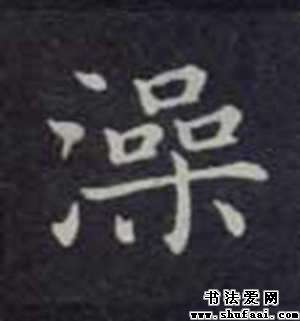 澡
书法爱网
www.shufaai.com